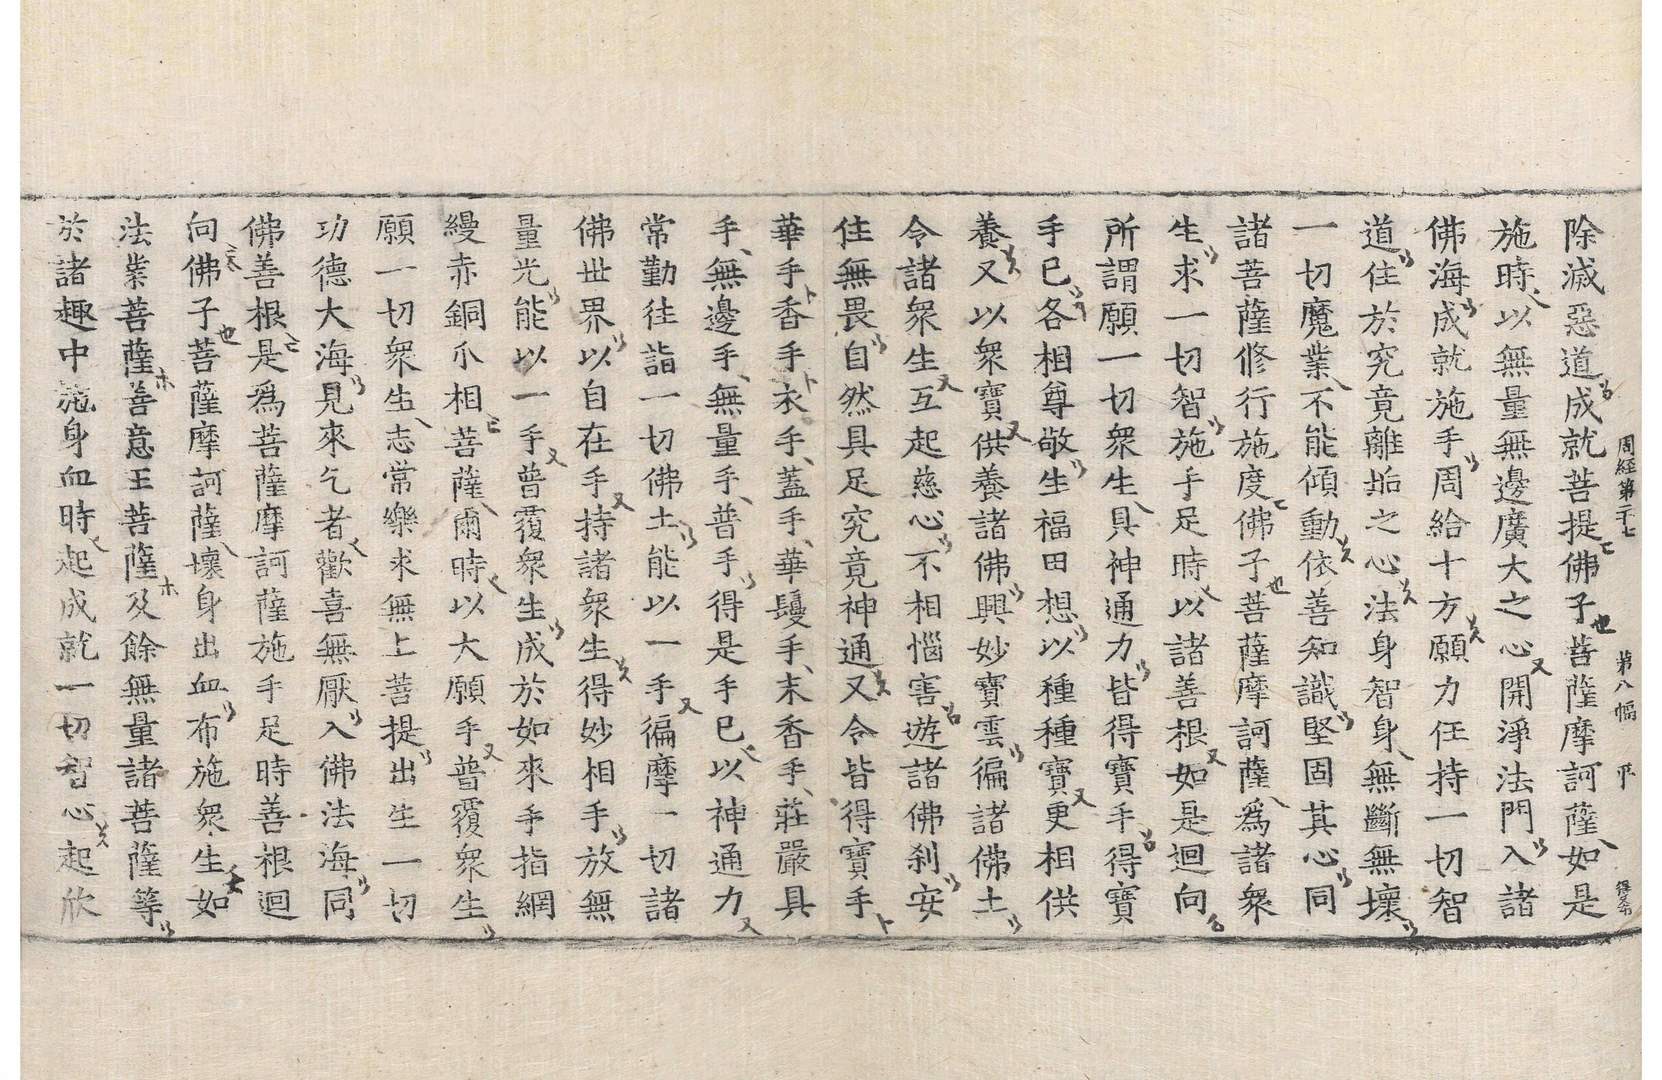 周經第二十七 第八幅 平
除滅惡道成就菩提佛子菩薩摩訶薩如是
施時以無量無邊廣大之心開淨法門入諸
佛海成就施手周給十方願力任持一切智
道住於究竟離垢之心法身智身無斷無壞
一切魔業不能傾動依善知識堅固其心同
諸菩薩修行施度佛子菩薩摩訶薩為諸衆
生求一切智施手足時以諸善根如是迴向
所謂願一切衆生具神通力皆得寶手得寶
手已各相尊敬生福田想以種種寶更相供
養又以衆寶供養諸佛興妙寶雲徧諸佛土
令諸衆生互起慈心不相惱害遊諸佛刹安
住無畏自然具足究竟神通又令皆得寶手
華手香手衣手蓋手華鬘手末香手莊嚴具
手無邊手無量手普手得是手已以神通力
常勤往詣一切佛土能以一手徧摩一切諸
佛世界以自在手持諸衆生得妙相手放無
量光能以一手普覆衆生成於如來手指網
縵赤銅爪相菩薩爾時以大願手普覆衆生
願一切衆生志常樂求無上菩提出生一切
功德大海見來乞者歡喜無厭入佛法海同
佛善根是爲菩薩摩訶薩施手足時善根迴
向佛子菩薩摩訶薩壞身出血布施衆生如
法業菩薩善意王菩薩及餘無量諸菩薩等
於諸趣中施身血時起成就一切智心起欣